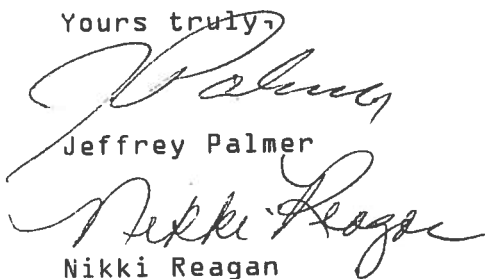 Yours truly,
J Palmer
Jeffrey Palmer
Nikki Reagan
Nikki Reagan